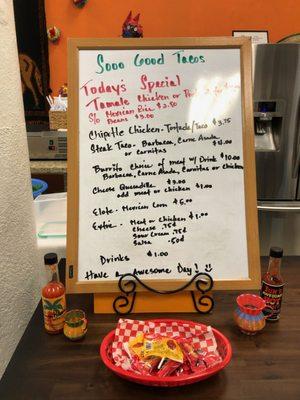 Sooo Good Tacos
Today's Special
Tamale Chicken or Pork 2 for
S/o Mexican Rice $2.50
Beans $3.00
Chipotle Chicken - Tostada/Taco $3.75
Steak Taco - Barbacoa, Carne Asada
or Carnitas
Burrito Choice of meat w/ Drink $10.00
Barbacoa, Carne Asada, Carnitas or chicken
Cheese Quesadilla $9.00
add meat or chicken $1.00
Elote - Mexican Corn $5.00
Extra - Meat or Chicken $1.00
Cheese .75¢
Sour Cream .75¢
Salsa .50¢
Drinks $1.00
Have a Awesome Day!